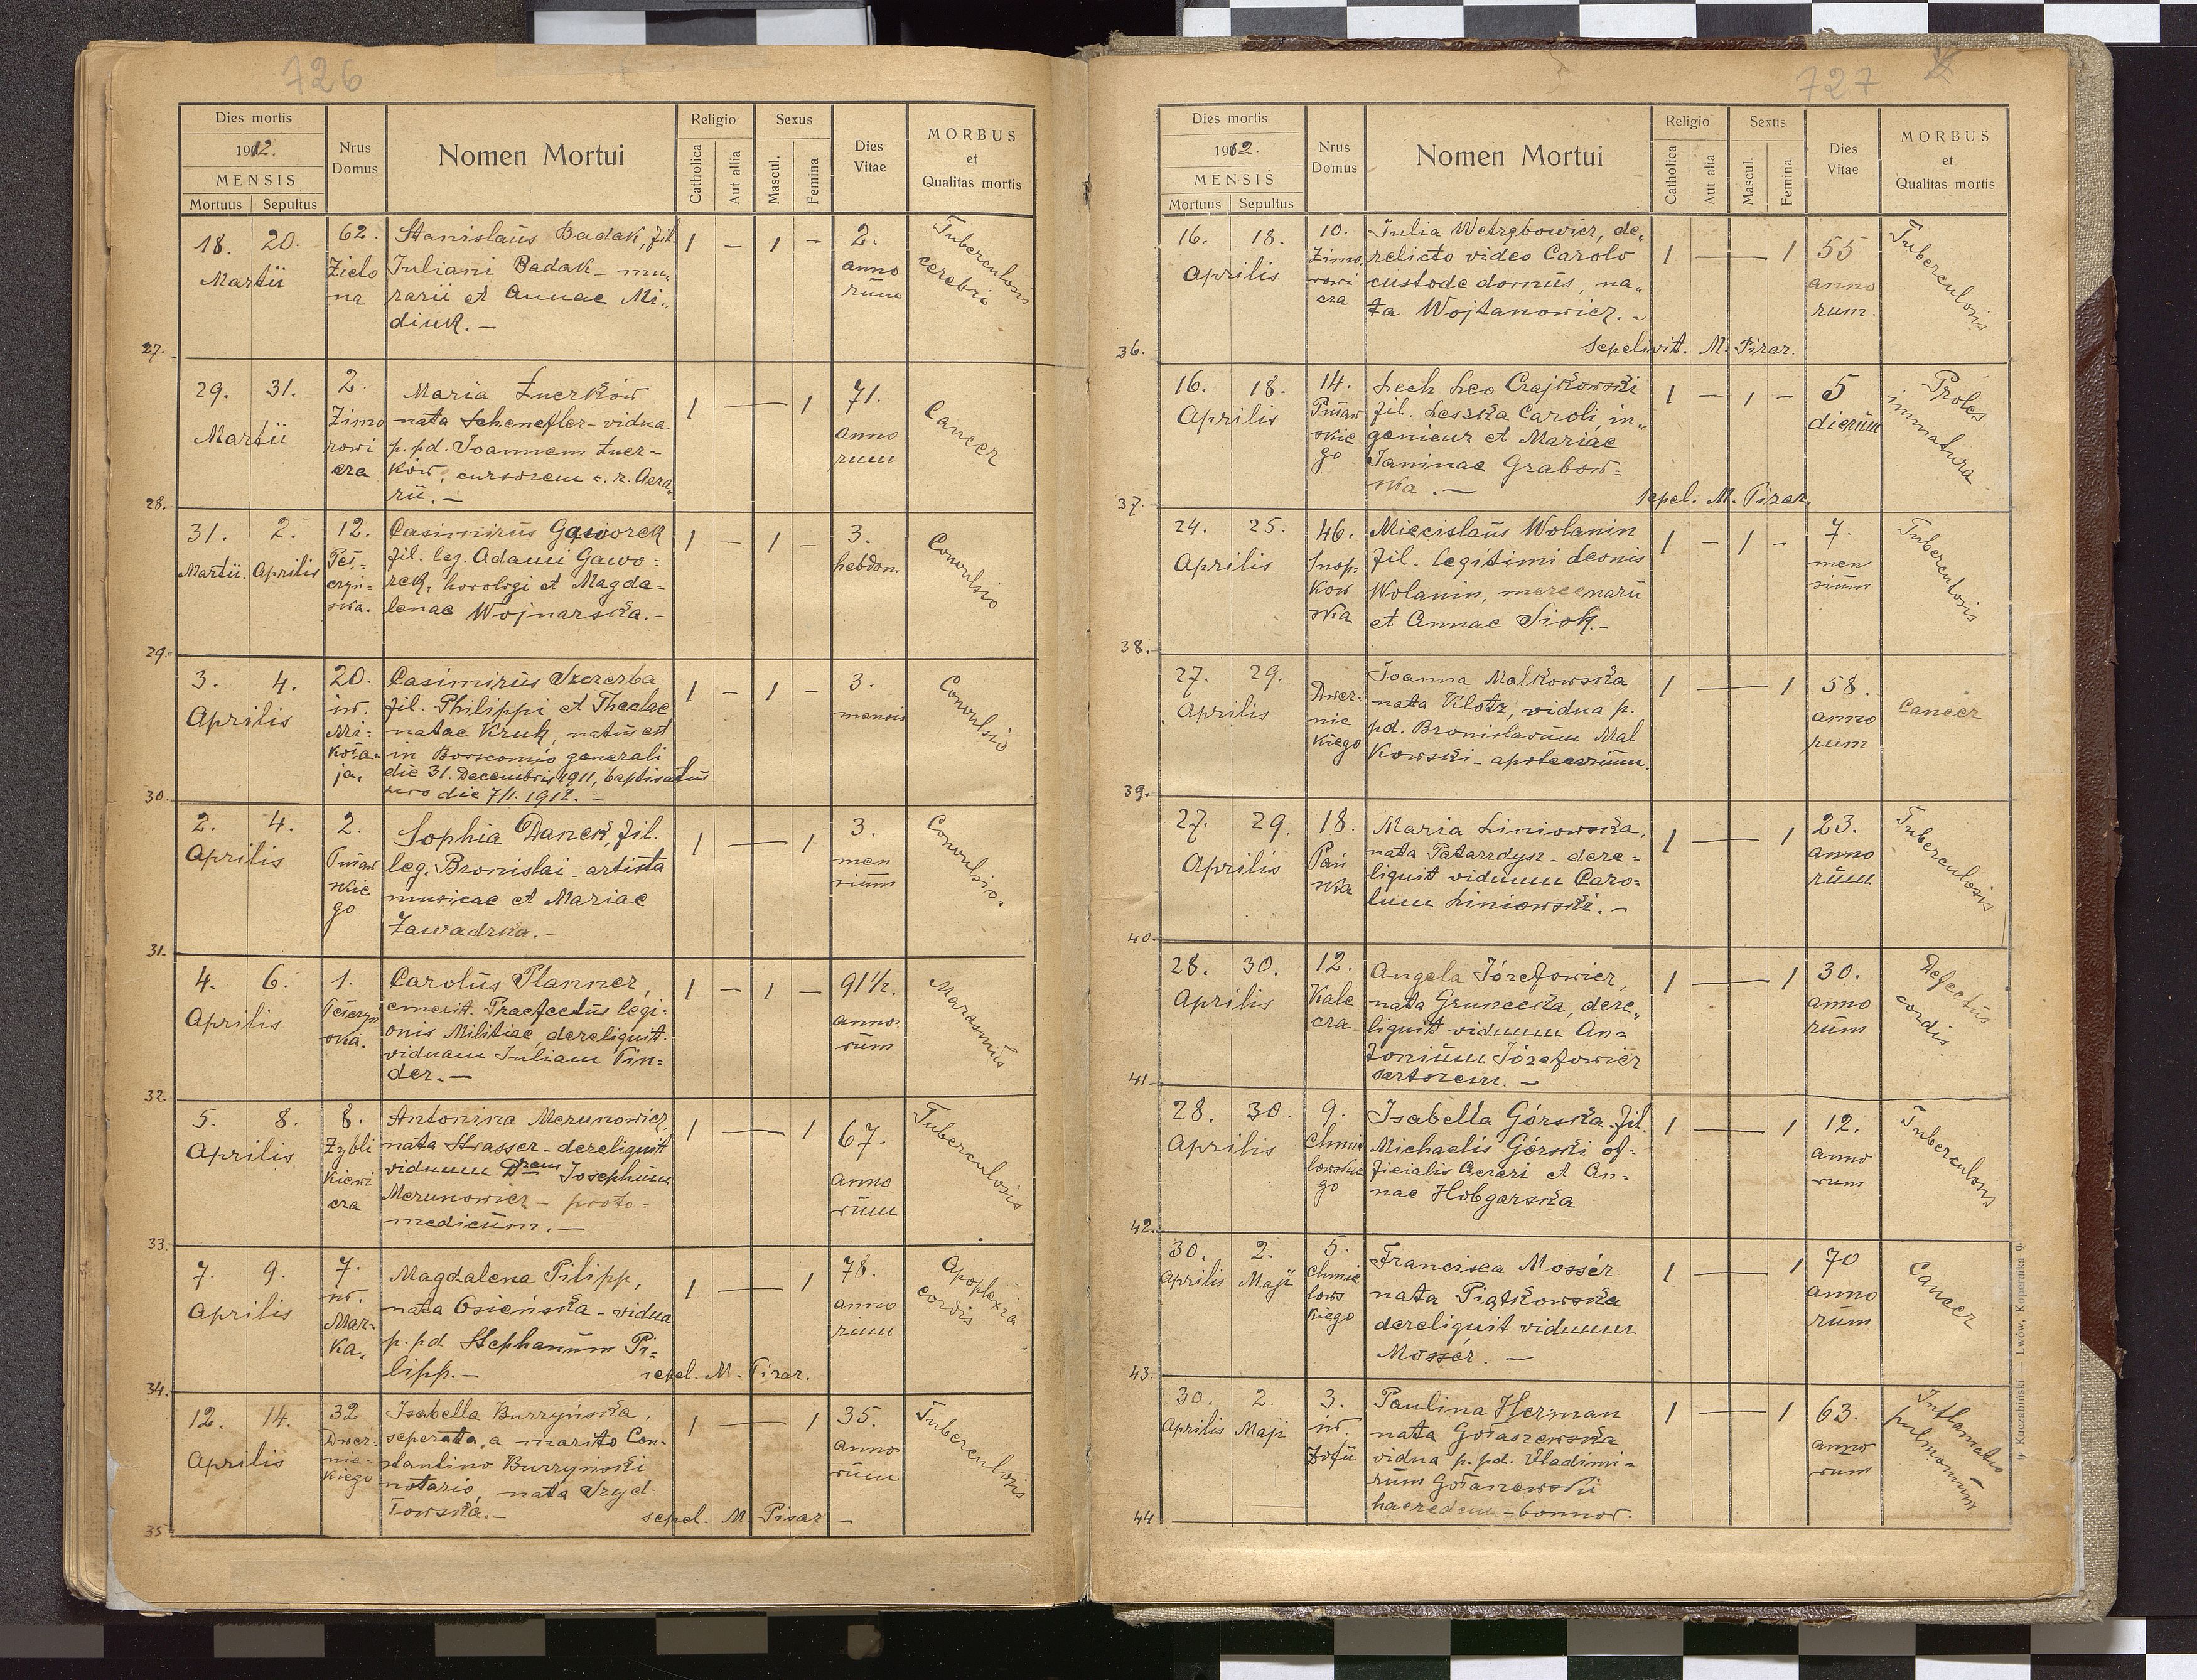 726
Dies mortis
1912.
MENSIS
Mortuus Sepultus
Nrus Domus
Nomen Mortui
Religio
Catholica
Aut allia
Sexus
Mascul.
Femina
Dies Vitae
MORBUS
et
Qualitas mortis
18. 20.
Martii
62.
Zielo
na
Stanislaus Badak, fil.
Juliani Badak - mu„
rarii et Annae Mi„
diuk. -
1 - 1 -
2.
anno
rum
Tuberculosis
cerebri
27.
29. 31.
Martii
2.
Zimo
rowi
cza
Maria Żuerków
nata Schenefler - vidua
p. pd. Joannem Żuer-
ków, cursorem c. r. Aera
rii. -
1 — 1
71.
anno
rum
Cancer
28.
31. 2.
Martii. Aprilis
12.
Peł-
czyń-
ska.
Casimirus Gaworek
fil. leg. Adami Gawo-
rek, horologi et Magda-
lenae Wojnarska. -
1 - 1 -
3.
hebdom
Convulsio
29.
3. 4.
Aprilis
20.
św.
Mi-
koła-
ja.
Casimirus Szczerba
fil. Philippi et Theclae
natae Kruk, natus est
in Bosscomio generali
die 31. Decembris 1911, baptisatus
vero die 7/1. 1912. -
1 - 1 -
3.
mensis
Convulsio
30.
2. 4.
Aprilis
2.
Tniaw
skie
go
Sophia Danek, fil.
leg. Bronislai - artista
musicae et Mariae
Zawadzka. -
1 — 1
3.
men
sium
Convulsio.
31.
4. 6.
Aprilis
1.
Pełczyń
ska.
Carolus Planner,
emerit. Praefectus legi-
onis Militiae, dereliquit
viduam Juliam Pin-
der. -
1 - 1 -
91 1/2.
anno
rum
Marasmus
32.
5. 8.
Aprilis
8.
Zybli
kiewi
cza
Antonina Merunowicz,
nata Strasser - dereliquit
viduum Drem Josephum
Merunowicz - proto-
medicum. -
1 — 1
67.
anno
rum
Tuberculosis
33.
7. 9.
Aprilis
7.
św.
Mar-
ka.
Magdalena Pilipp,
nata Osieńska - vidua
p. pd Stephanum Pi-
lipp. -
sepel. M. Pisar.
1 — 1
78.
anno
rum
Apoplexia
cordis
34.
12. 14.
Aprilis
32
Dwer-
nic-
kiego
Isabella Burzyńska,
seperata, a marito Con-
stantino Burzyński
notario, nata Szyd-
łowska. -
sepel. M. Pisar -
1 — 1
35.
anno
rum
Tuberculosis
35
727
Dies mortis
1912.
MENSIS
Mortuus Sepultus
Nrus Domus
Nomen Mortui
Religio
Catholica
Aut alia
Sexus
Mascul.
Femina
Dies Vitae
MORBUS
et
Qualitas mortis
16. 18.
Aprilis
10.
Zimo.
rowi
cza
Julia Wetrębowicz, de„
relicto viduo Carolo
custode domus, na„
ta Wojtanowicz. -
sepelivit. M. Pisar.
1 — 1
55
anno
rum.
Tuberculosis
36.
16. 18.
Aprilis
14.
Tniaw
skie
go
Lech Leo Czajkowski
fil. Leszka Caroli, in„
genieur et Mariae
Janinae Grabow-
ska. -
sepel. M. Pisar.
1 - 1 -
5
dierum
Proles
immatura
37.
24. 25.
Aprilis
46.
Snop-
kow
ska
Miecislaus Wolanin
fil. legitimi Leonis
Wolanin, mercenarii
et Annae Siok. -
1 - 1 -
7.
men
sium
Tuberculosis
38.
27. 29.
Aprilis
Dwer-
nic
kiego
Joanna Malkowska
nata Klotz, vidua p.
pd. Bronislavum Mal
kowski - apotecarium.
1 — 1
58.
anno
rum
Cancer
39.
27. 29.
Aprilis
18.
Pań
ska
Maria Liniowska,
nata Tatarzdysz - dere-
liquit viduum Caro-
lum Liniowski. -
1 — 1
23.
anno
rum
Tuberculosis
40.
28. 30.
Aprilis
12.
Kale
cza
Angela Józefowicz,
nata Grunecka, dere„
liquit viduum An-
tonium Józefowicz
sartorem. -
1 — 1
30.
anno
rum
Defectus
cordis.
41.
28. 30.
Aprilis
9.
Chmie
lowskie
go
Isabella Górska. fil.
Michaelis Górski of-
ficialis Aerari et An-
nae Hobgarska
1 — 1
12.
anno
rum
Tuberculosis
42.
30. 2.
Aprilis Maji
5.
Chmie
lows
kiego
Francisca Mossér
nata Piątkowska
dereliquit viduum
Mossér. -
1 — 1
70
anno
rum
Cancer
43.
30. 2.
Aprilis Maji
3.
św.
Zofii
Paulina Herman
nata Gołaszewska
vidua p. pd. Vladimi-
rum Gołaszewski
haeredem - bonnor.
1 — 1
63.
anno
rum
Inflamatio
pulmonum
44
Kuczabiński — Lwów, Kopernika 9.